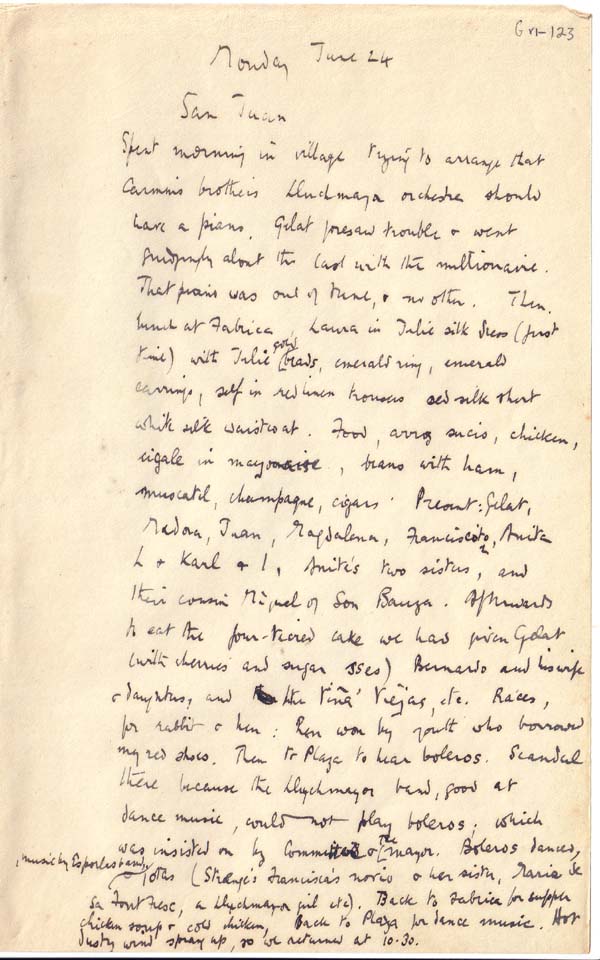 G VI-123
Monday June 24
San Juan
Spent morning in village trying to arrange that
Carmin's brother's Lluchmayor orchestra should
have a piano. Gelat foresaw trouble & went
grudgingly about the last with the multionaire.
That piano was out of tune, & no other. Then,
lunch at Fabrica, Laura in Julie silk dress (first
time) with Julie gold beads, emerald ring, emerald
earrings, self in red linen trousers red silk shirt
white silk waistcoat. Food, arroz sucio, chicken,
cigale in mayonaise, beans with ham,
muscatel, champagne, cigars. Present: Gelat,
Madora, Juan, Magdalena, Francisco, Anita
L & Karl & I, Anita's two sisters, and
their cousin Miguel of Son Bauza. Afterwards
to eat the four-tiered cake we had given Gelat
(with cherries and sugar sses) Bernardo and his wife
& daughters, and the Viña Viejas, etc. Races,
for rabbit & hen: Hen won by youth who borrowed
my red shoes. Then to Plaza to hear boleros. Scandal
there because the Lluchmayor band, good at
dance music, could not play boleros; which
was insisted on by Committee & the mayor. Boleros danced,
, music by Esporlas band,
jotas (Strange's Francisca's novio & her sister, Maria de
Sa Font Fresc, a Lluchmayor girl etc). Back to Fabrica for supper
chicken soup & cold chicken, Back to Plaza for dance music. Hot
dusty wind sprang up, so we returned at 10.30.